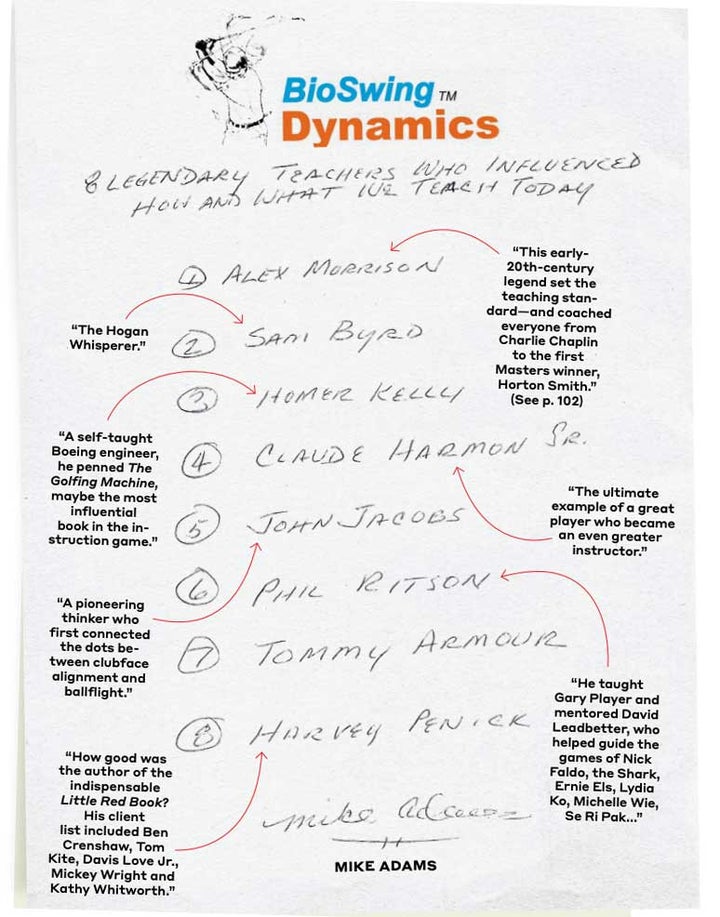 BioSwing™
Dynamics
8 LEGENDARY TEACHERS WHO INFLUENCED
HOW AND WHAT WE TEACH TODAY
① ALEX MORRISON
“This early-
20th-century
legend set the
teaching stan-
dard—and coached
everyone from
Charlie Chaplin
to the first
Masters winner,
Horton Smith.”
(See p. 102)
“The Hogan
Whisperer.”
② SAM BYRD
③ HOMER KELLY
“A self-taught
Boeing engineer,
he penned The
Golfing Machine,
maybe the most
influential
book in the in-
struction game.”
④ CLAUDE HARMON SR.
“The ultimate
example of a great
player who became
an even greater
instructor.”
⑤ JOHN JACOBS
“A pioneering
thinker who
first connected
the dots be-
tween clubface
alignment and
ballflight.”
⑥ PHIL RITSON
“He taught
Gary Player and
mentored David
Leadbetter, who
helped guide the
games of Nick
Faldo, the Shark,
Ernie Els, Lydia
Ko, Michelle Wie,
Se Ri Pak...”
⑦ TOMMY ARMOUR
⑧ HARVEY PENICK
“How good was
the author of the
indispensable
Little Red Book?
His client
list included Ben
Crenshaw, Tom
Kite, Davis Love Jr.,
Mickey Wright and
Kathy Whitworth.”
mike adams
MIKE ADAMS